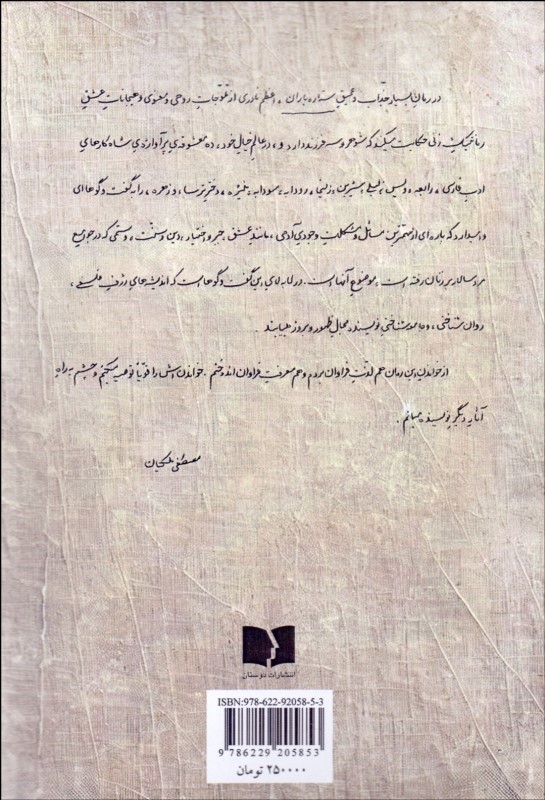 در رمان بسیار جذّاب و عمیق ستاره باران، اعظم نادری از تموّجات روحی و معنوی و هیجانات عشق
رمانتیک زنی حکایت میکند که شوهر و سه فرزند دارد و، در عالم خیال خود، ده معشوقه‌ی پرآوازه‌ی شاهکارهای
ادب فارسی، رابعه، ویس، لیلی، شیرین، زلیخا، رودابه، سودابه، منیژه، دختر ترسا، و زهره، را به گفت و گوهائی
وامیدارد که پاره‌ای از مهمترین مسائل و مشکلات وجودی آدمی، مانند عشق، جبر و اختیار، دین و سنّت، و ستمی که در جوامع
مردسالار بر زنان رفته است، موضوع آنها است. در لابه‌لای این گفت و گوها است که اندیشه‌های ژرف فلسفی،
روان شناختی، و جامعه شناختی نویسنده مجال ظهور و بروز مییابند.
از خواندن این رمان هم لذّت فراوان بردم و هم معرفت فراوان اندوختم. خواندن‌اش را قویّاً توصیه میکنم و چشم به راه
آثار دیگر نویسنده میمانم.
مصطفی ملکیان
انتشارات دوستان
ISBN:978-622-92058-5-3
9 786229 205853
۲۵۰۰۰۰ تومان